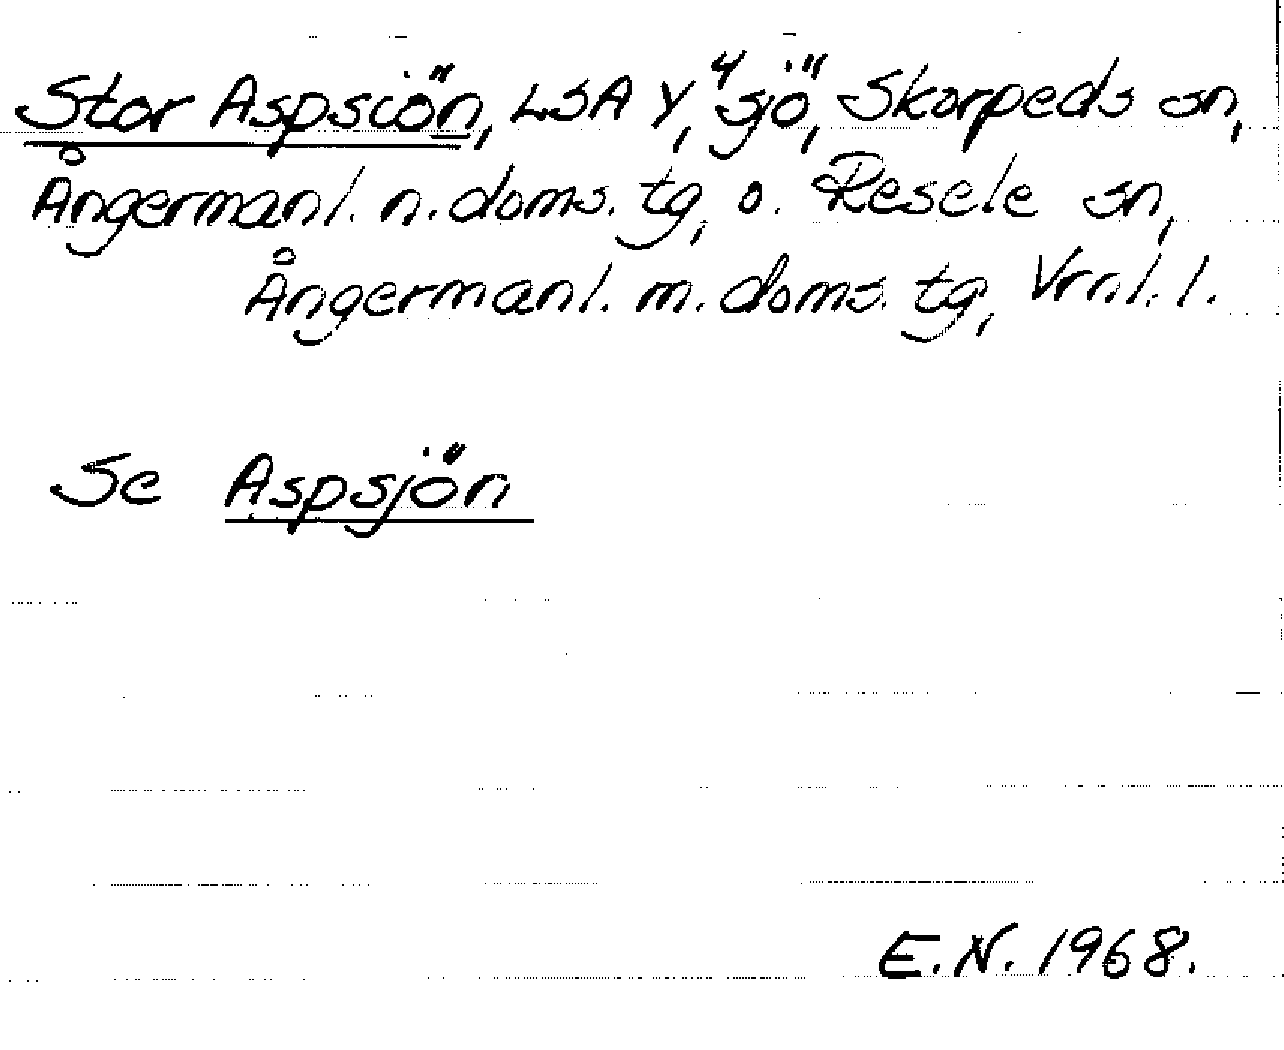 Stor Aspsiön, LSA Y, 4 sjö, Skorpeds sn,
Ångermanl. n. doms. tg, o. Resele sn,
Ångermanl. m. doms. tg, Vrnl. l.
Se Aspsjön
E.N. 1968.